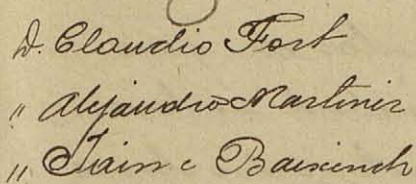 D. Claudio Fort
" Alejandro Martinez
" Jaime Baixench